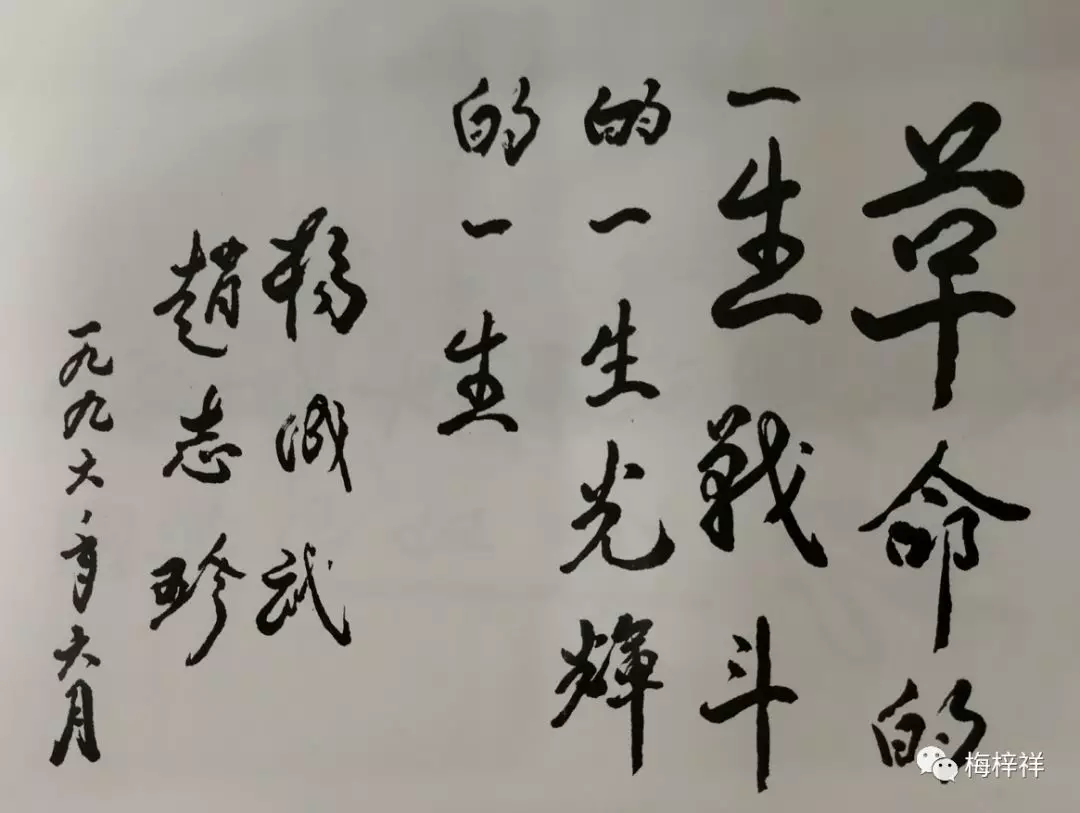 革命的
一生戰斗
的一生光輝
的一生
楊成武
趙志珍
一九九六年六月
梅梓祥